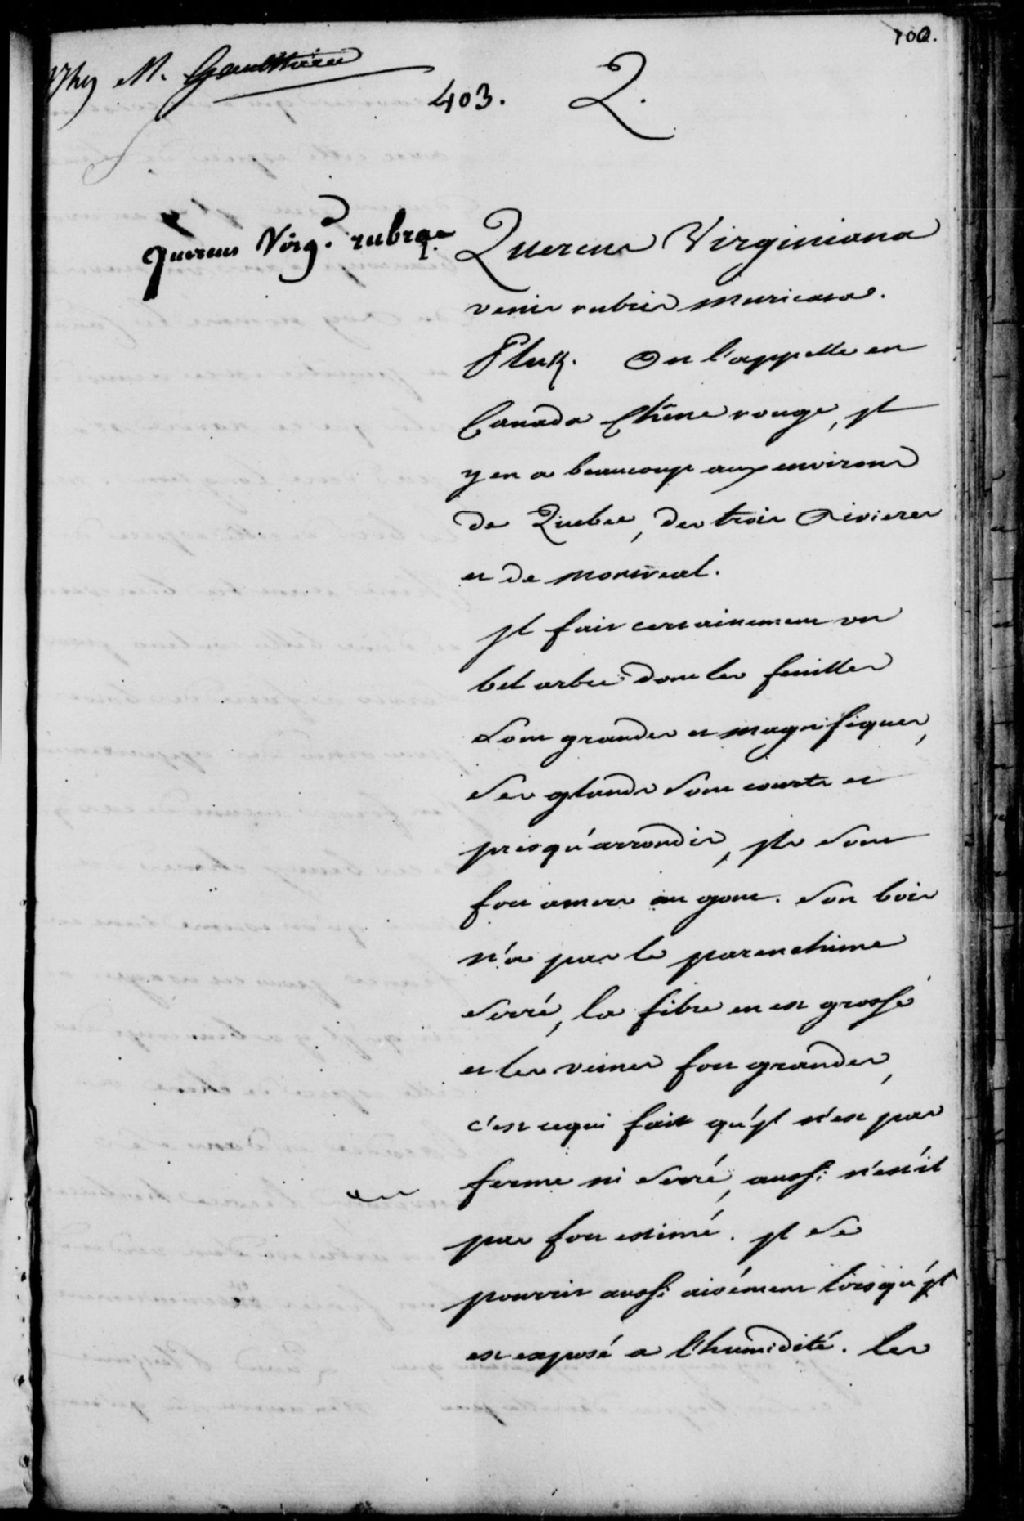 100.
M. Gaulthier
403. Q.
Quercus Virg. rubra
Quercus Virginiana
venis rubris muricata.
Pluk. On l'appelle en
Canada Chêne rouge, jl
y en a beaucoup aux environs
de Quebec, des trois Rivieres
et de montreal.
jl fait certainement un
bel arbre dont les feuilles
sont grandes et magnifiques,
ses glands sont courts et
presqu'arrondis, jls sont
fort amers au gout. Son bois
n'a pas le parenchime
serré, la fibre en est grosse
et les veines fort grandes,
c'est cequi fait qu'jl n'est pas
ferme ni serré, aussi n'est'il
pas fort estimé. jl se
pourrit aussi aisément lorsqu'jl
est exposé a l'humidité. les